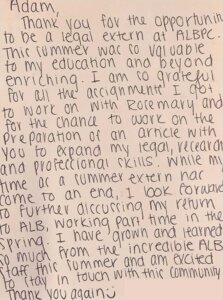 Adam,
Thank you for the opportunity
to be a legal extern at ALBPC.
This summer was so valuable
to my education and beyond
enriching. I am so grateful
for all the assignments I got
to work on with Rosemary and
for the chance to work on the
preparation of an article with
you to expand my legal, research
and professional skills. While my
time as a summer extern has
come to an end, I look forward
to further discussing my return
to ALB, working part time in the
spring. I have grown and learned
so much from the incredible ALB
staff this summer and am excited
to stay in touch with this community.
Thank you again :)